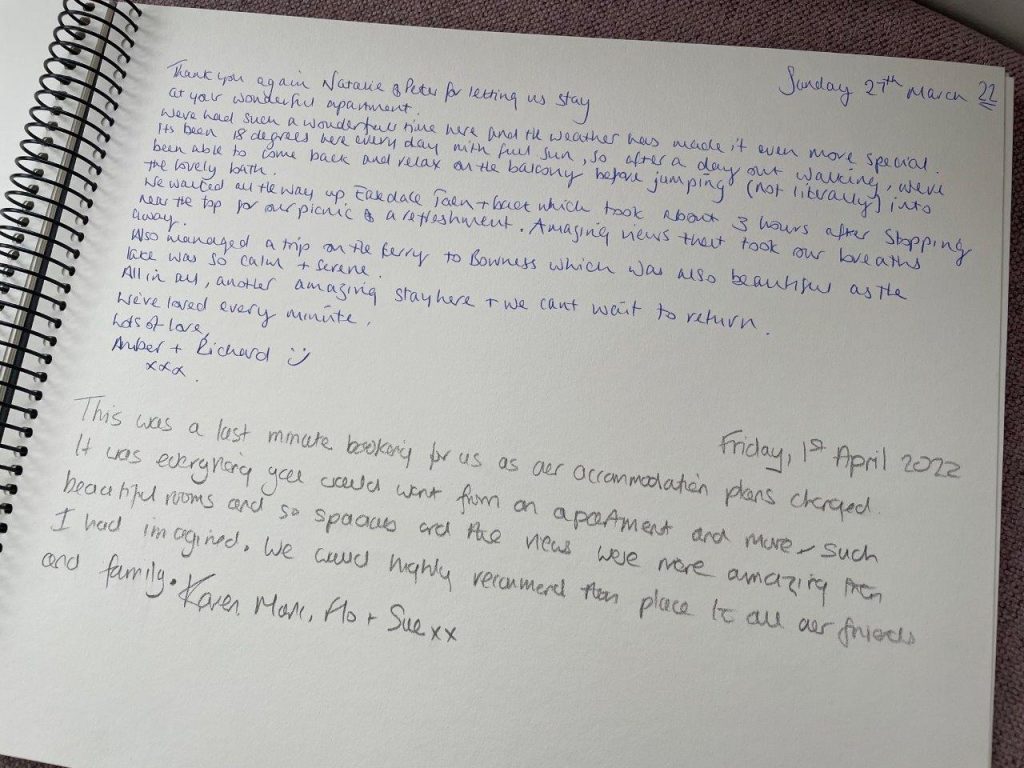 Sunday 27th March 22
Thank you again Natalie & Peter for letting us stay
at your wonderful apartment.
We've had such a wonderful time here and the weather has made it even more special.
Its been 18 degrees here every day with full sun, so after a day out walking, we've
been able to come back and relax on the balcony before jumping (not literally) into
the lovely bath.
We walked all the way up Easdale Tarn + back which took about 3 hours after stopping
near the top for our picnic & a refreshment. Amazing views that took our breaths
away.
Also managed a trip on the ferry to Bowness which was also beautiful as the
lake was so calm + serene.
All in all, another amazing stay here + we cant wait to return.
We've loved every minute.
Lots of love,
Amber + Richard :)
xxx.
Friday, 1st April 2022
This was a last minute booking for us as our accommodation plans changed.
It was everything you could want from an apartment and more, such
beautiful rooms and so spacious and the views were more amazing then
I had imagined. We would highly recommend place to all our friends
and family. Karen, Mark, Flo + Sue xx